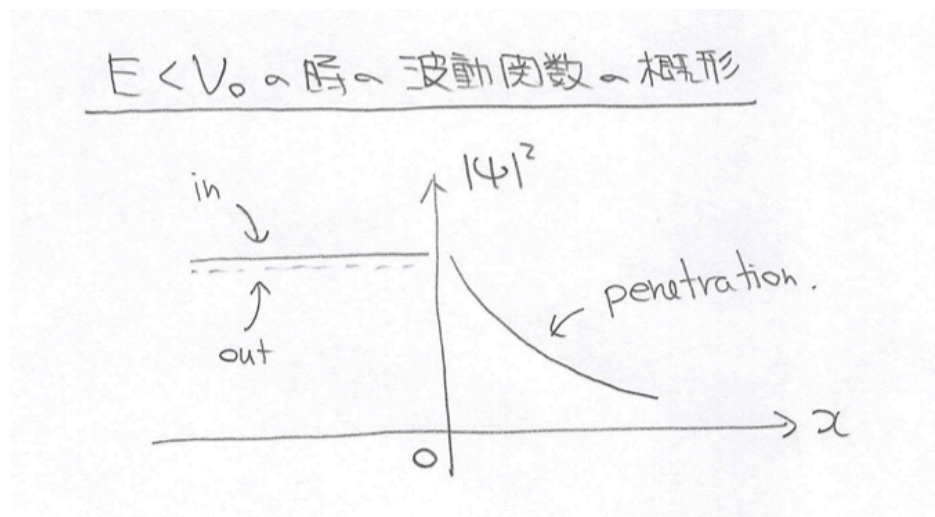 E < V₀ の時の波動関数の概形
|Ψ|²
in
out
penetration.
x
0